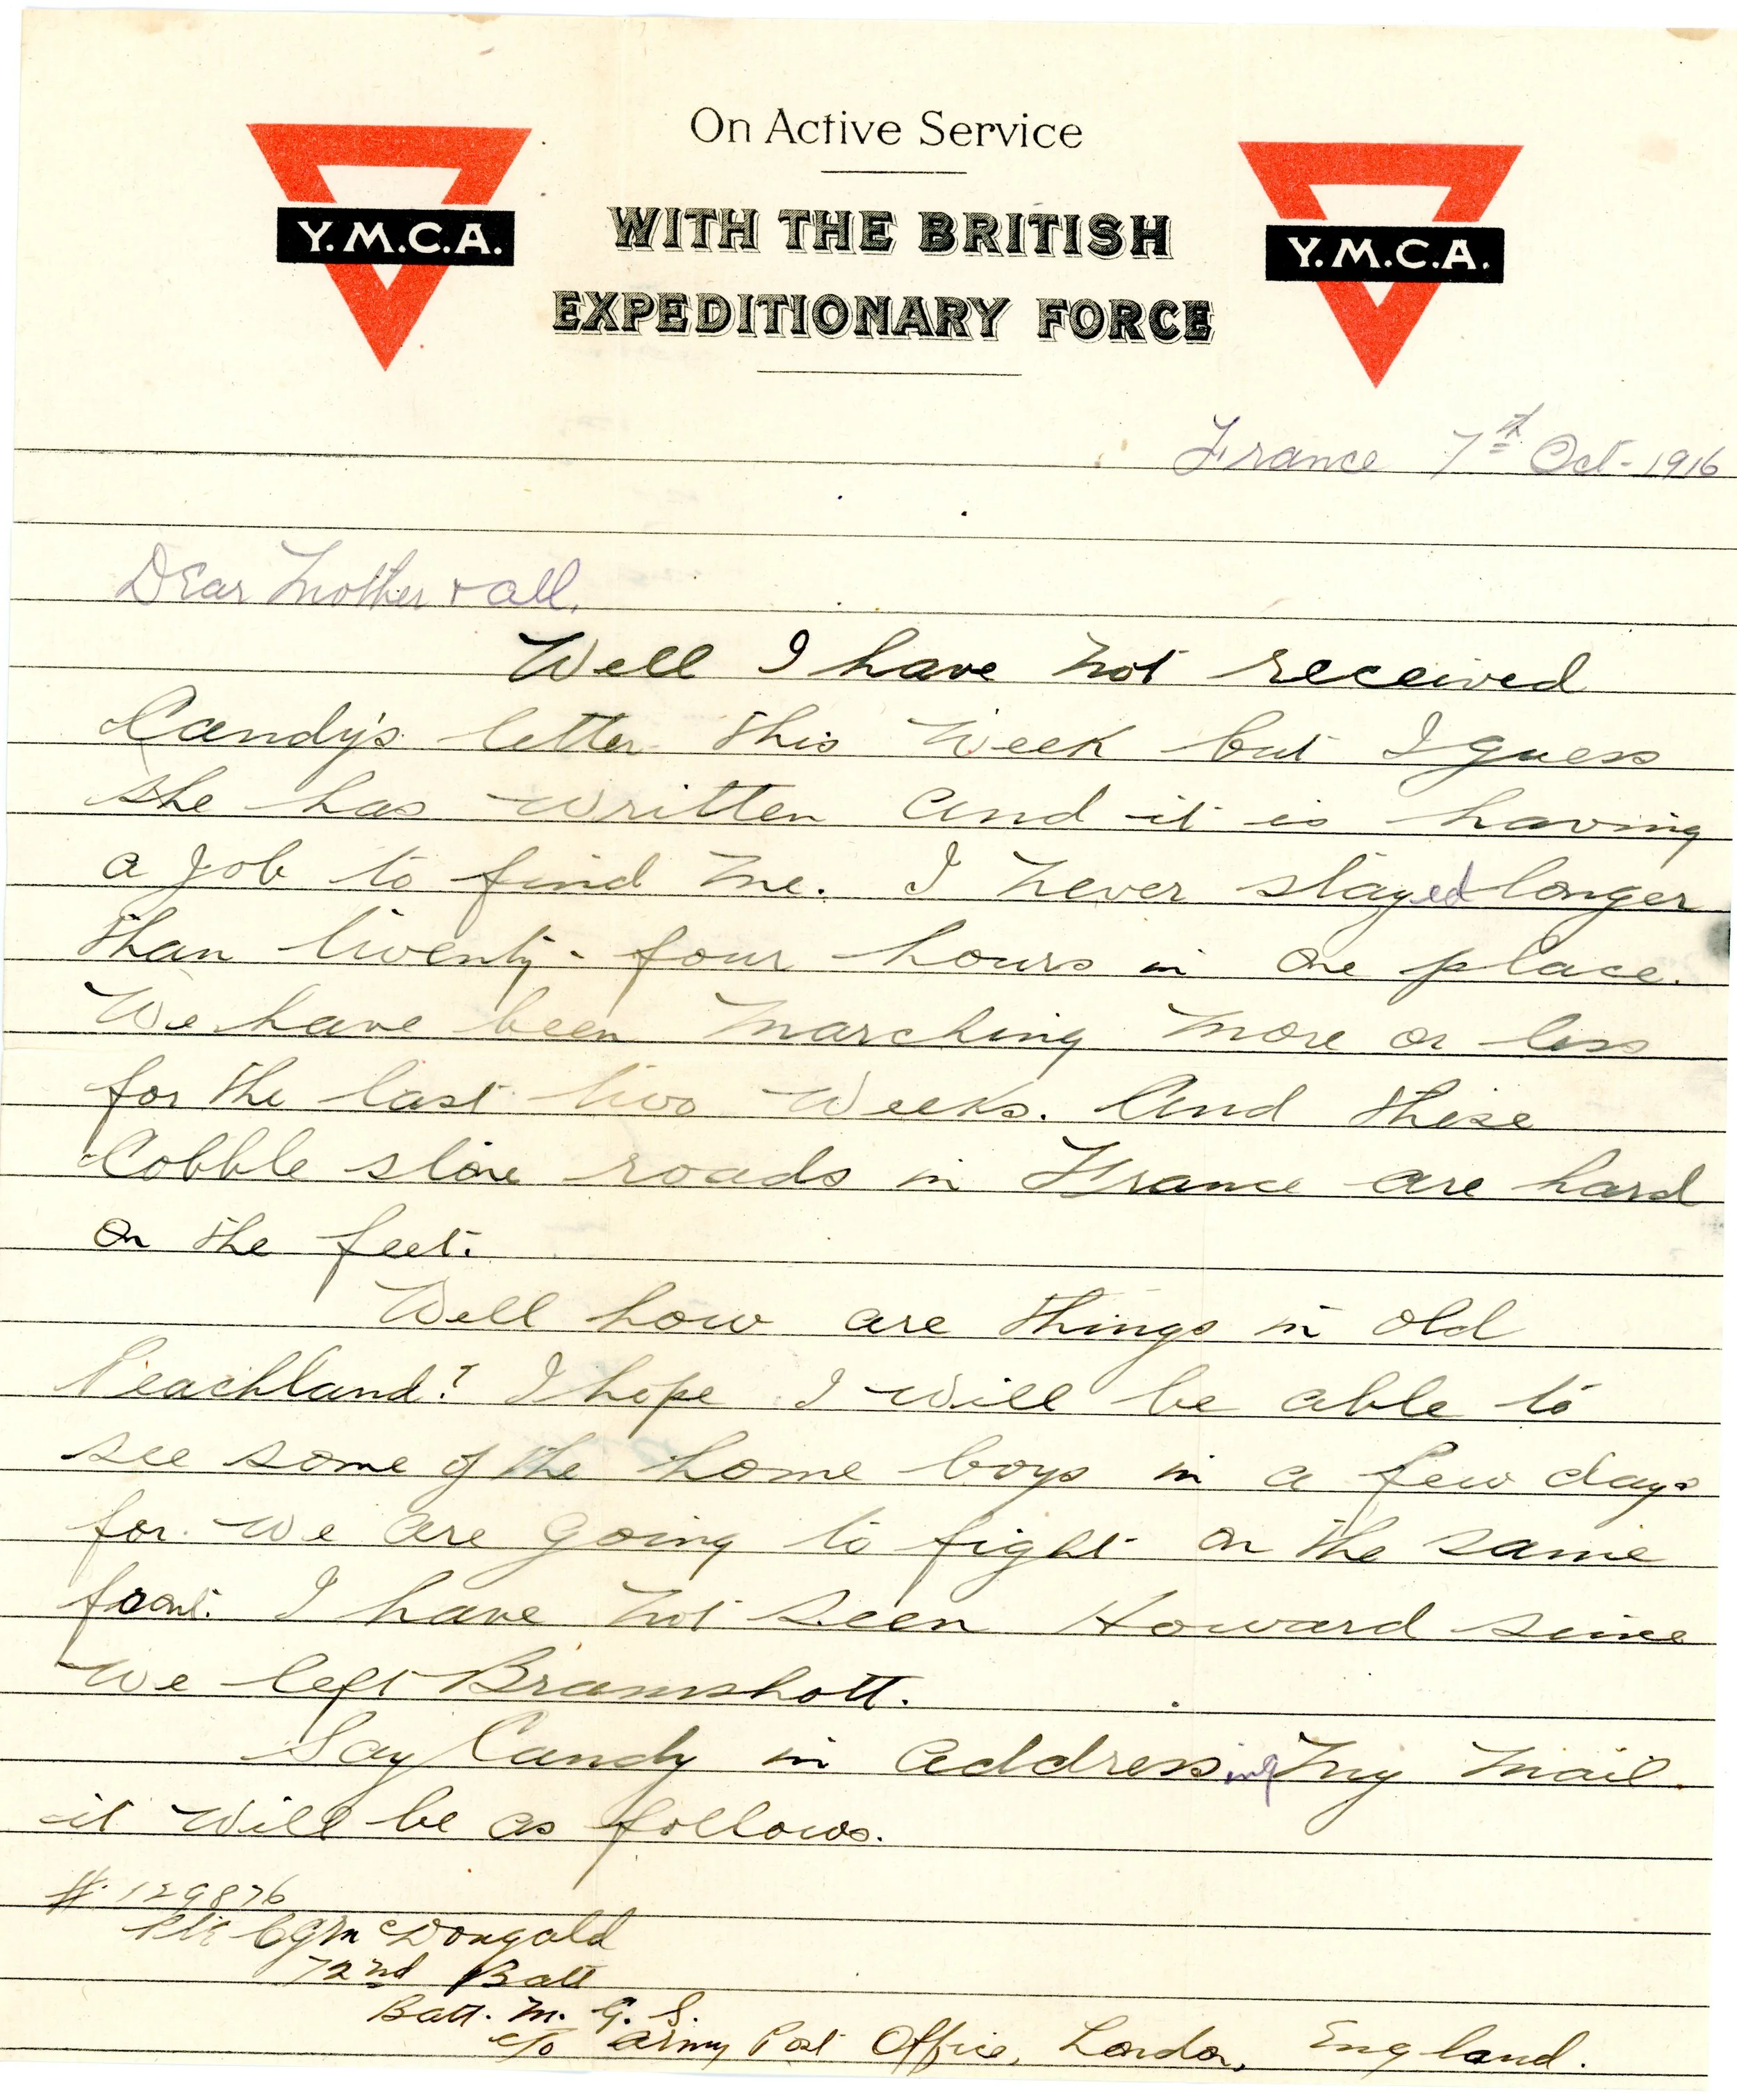 On Active Service
WITH THE BRITISH
EXPEDITIONARY FORCE
Y.M.C.A.
Y.M.C.A.
France 7th Oct-1916
Dear Mother & all.
Well I have not received
Candy's letter this week but I guess
she has written and it is having
a job to find me. I never stayed longer
than twenty-four hours in one place.
We have been marching more or less
for the last two weeks. And these
Cobble stone roads in France are hard
on the feet.
Well how are things in old
Peachland? I hope I will be able to
see some of the home boys in a few days
for we are going to fight on the same
front. I have not seen Howard since
we left Bramshott.
Say Candy in addressing my mail.
it will be as follows.
#129876
Pte CGMcDougald
72nd Batt
Batt. M. G. S.
c/o Army Post Office, London, England.